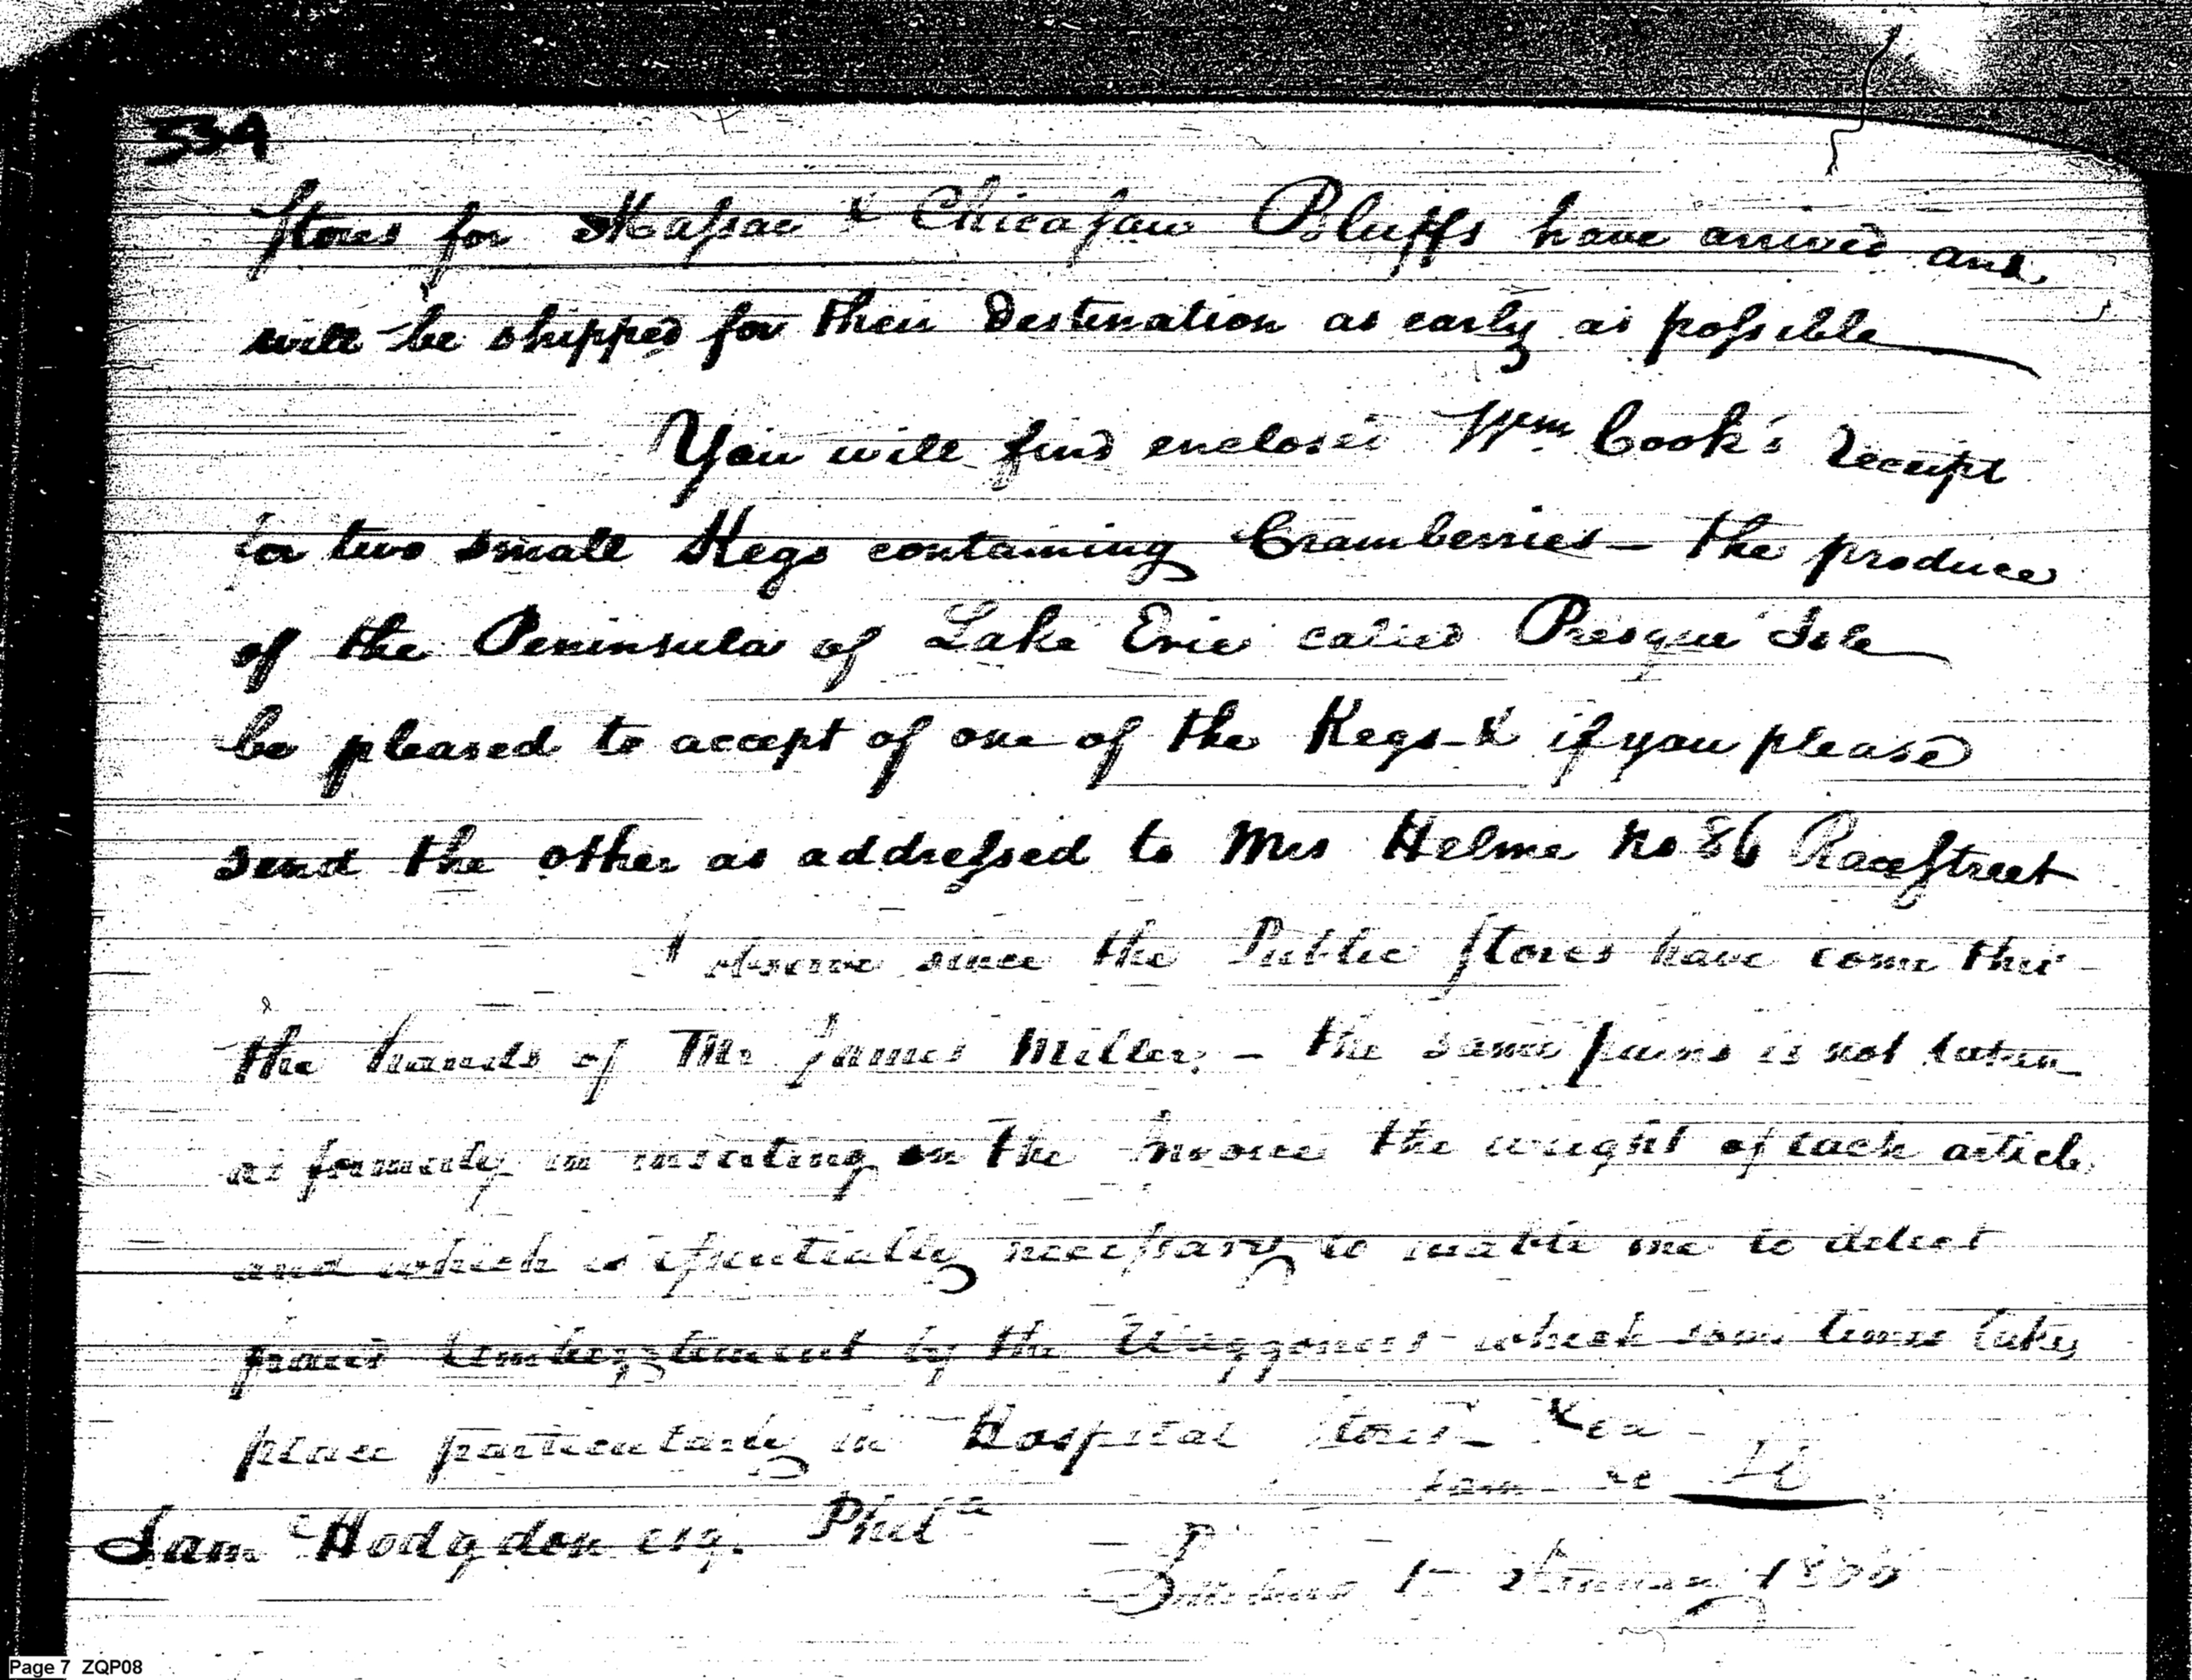 534
Stores for Massac & Chicasaw Bluffs have arrived and
will be shipped for their Destination as early as possible
You will find enclosed Wm Cook's receipt
for two small Kegs containing Cramberries - the produce
of the Peninsula of Lake Erie called Presque Isle
be pleased to accept of one of the Kegs & if you please
send the other as addressed to Mrs Helme No 86 Race Street
I observe since the Public Stores have come thro'
the hands of Mr James Miller, - the same pains is not taken
as formerly in inserting on the Invoice the weight of each article
and which is essentially necessary to enable me to detect
frauds Embezzlement by the Waggoners which some times takes
place particularly in Hospital Stores - &ca -
I am &c
Sam Hodgdon esq. Phila
1 January 1800
Page 7 ZQP08